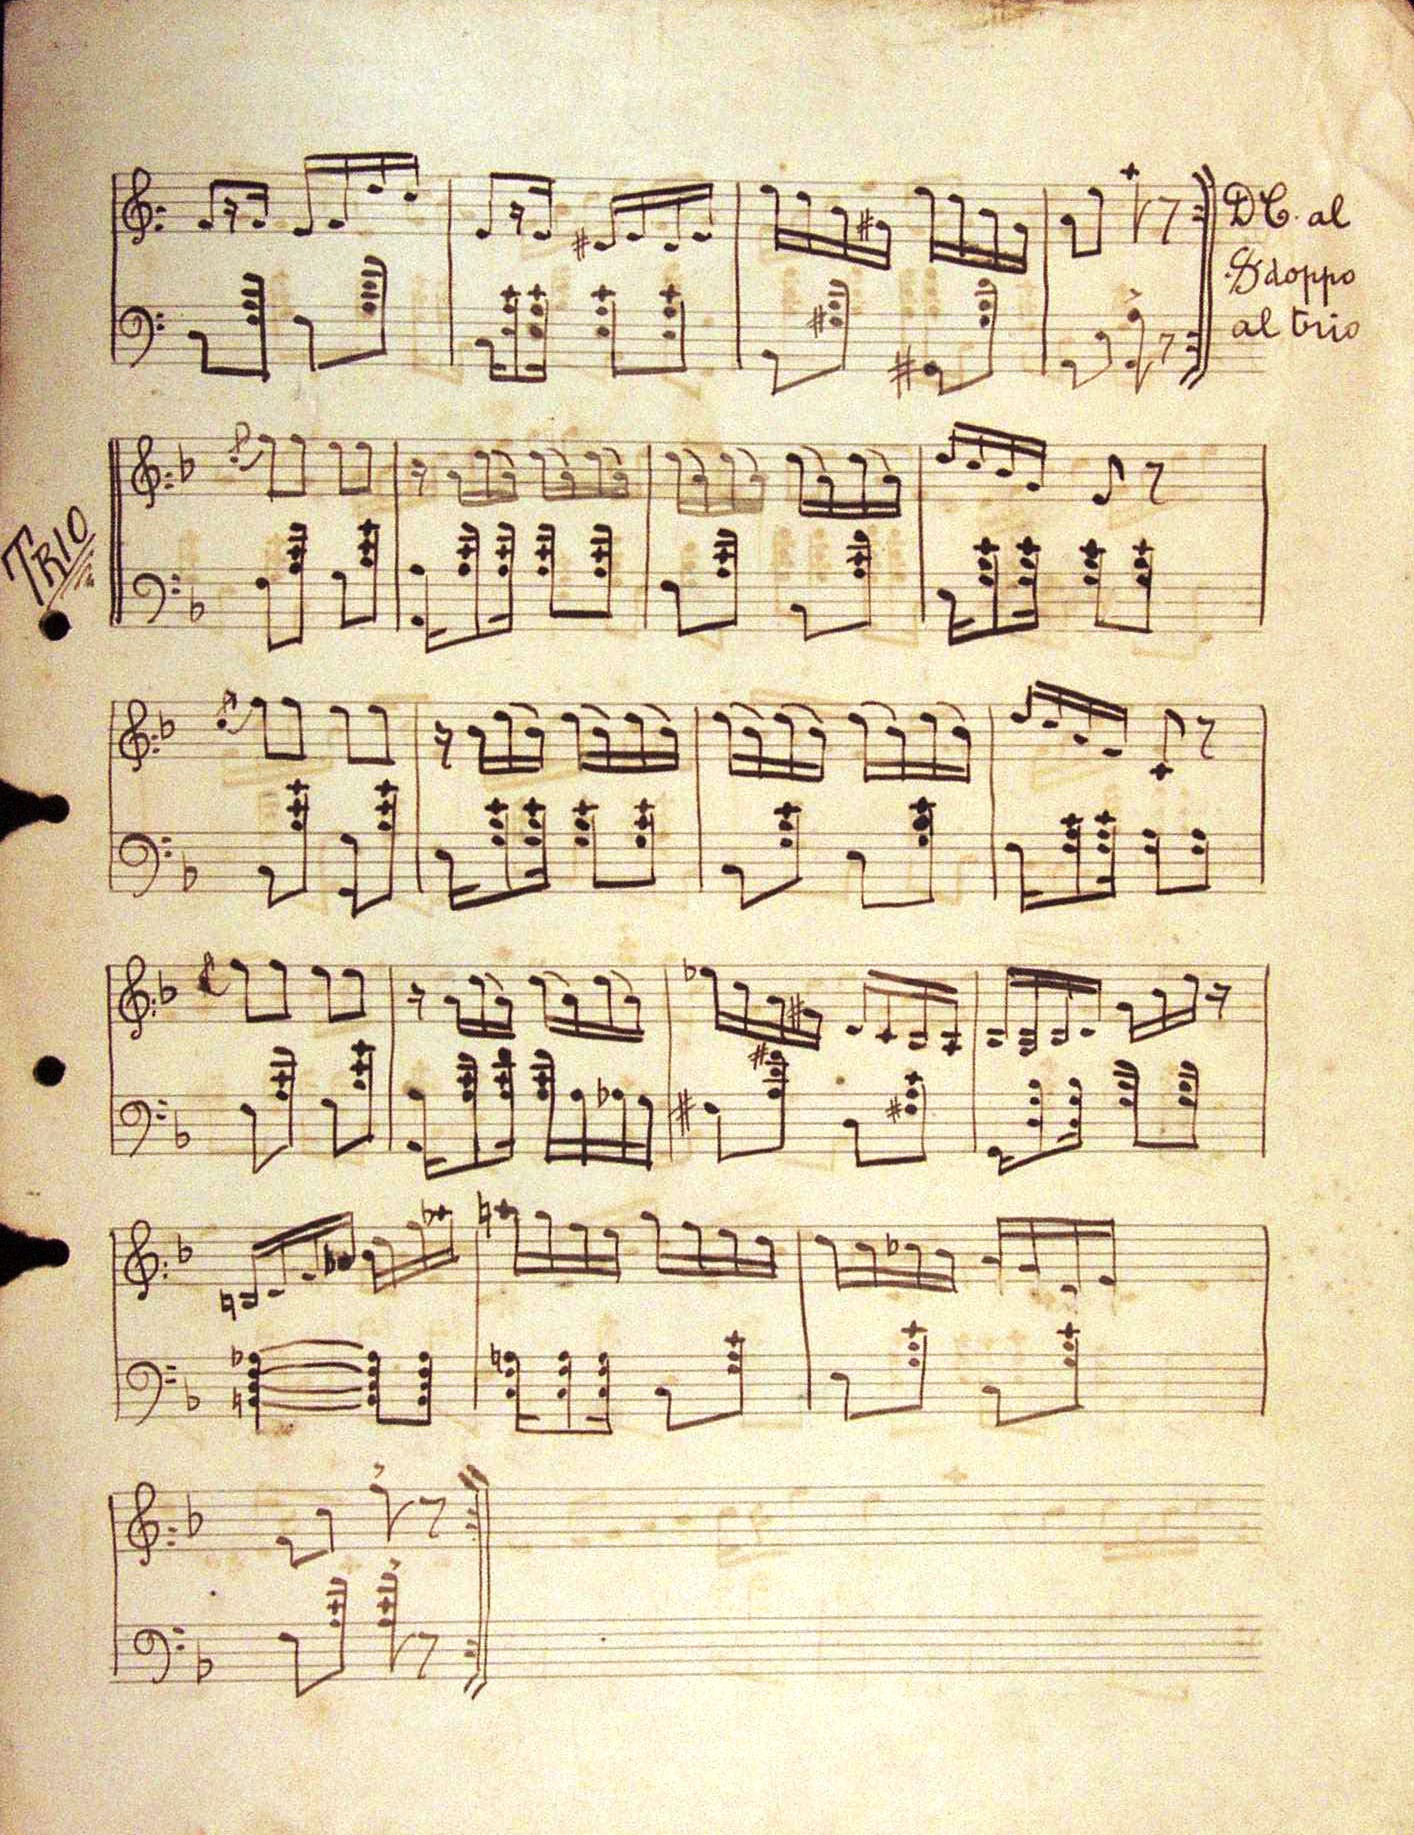 DC. al
S doppo
al trio
TRIO